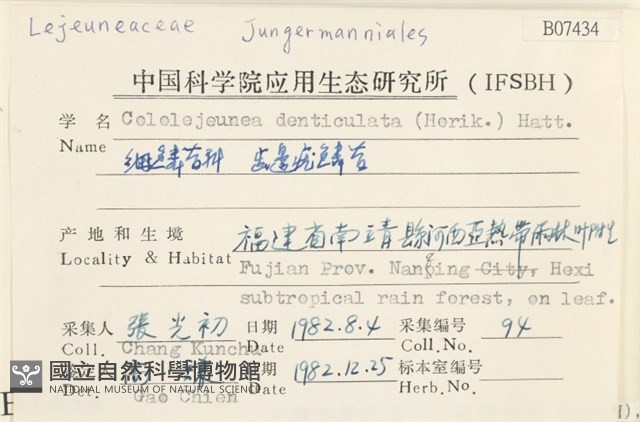 Lejeuneaceae Jungermanniales
B07434
中国科学院应用生态研究所 (IFSBH)
学名 Cololejeunea denticulata (Horik.) Hatt.
Name
细鳞苔科 齿边疣鳞苔
产地和生境 福建省南靖縣河西亚熱带雨林叶附生
Locality & Habitat Fujian Prov. Nanging City, Hexi
subtropical rain forest, on leaf.
采集人 張光初 日期 1982.8.4 采集编号 94
Coll. Chang Kunchu Date Coll.No.
期 1982.12.25 标本室编号
Det. Gao Chien Date Herb.No.
國立自然科學博物館
NATIONAL MUSEUM OF NATURAL SCIENCE